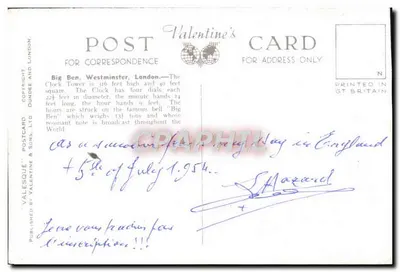 Valentine's
POST CARD
FOR CORRESPONDENCE
FOR ADDRESS ONLY
Big Ben, Westminster, London.—The
Clock Tower is 316 feet high and 40 feet
square. The Clock has four dials each
22½ feet in diameter, the minute hands 14
feet long, the hour hands 9 feet. The
hours are struck on the famous bell "Big
Ben" which weighs 13½ tons and whose
resonant note is broadcast throughout the
World
N
PRINTED IN
GT BRITAIN
VALESQUE POSTCARD COPYRIGHT
PUBLISHED BY VALENTINE & SONS, LTD. DUNDEE AND LONDON
As a souvenir from my stay in England
+ 5th of July 1954.
Hazard
Je ne vous traduis pas
l'inscription!!!